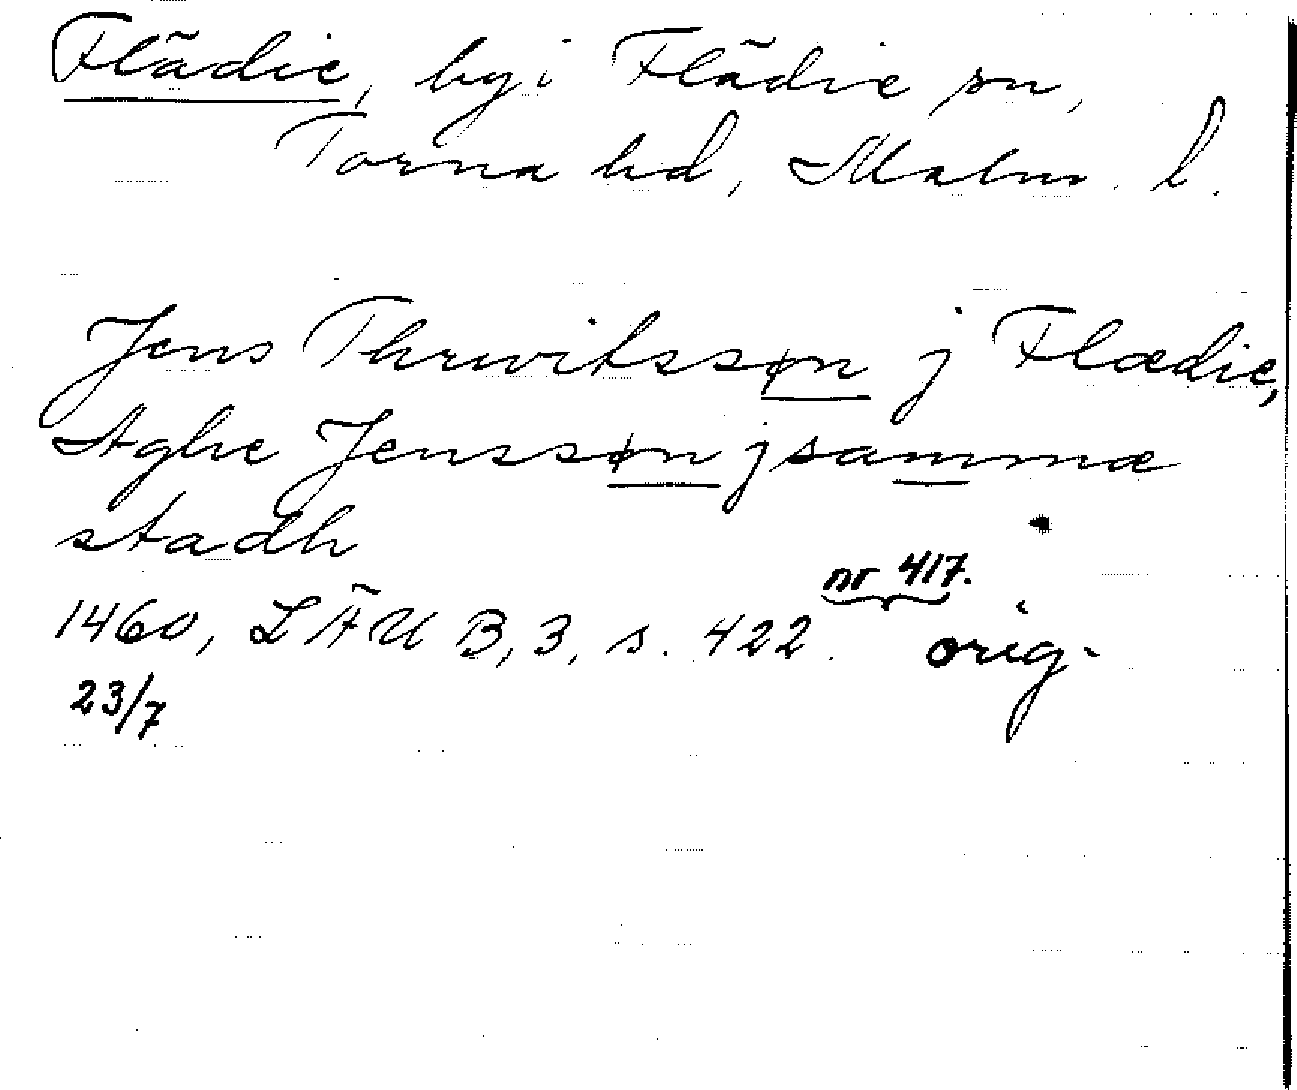 Flädie, by i Flädie sn,
Torna hd, Malm. l.
Jens Thrwitssøn j Flædie,
Aghe Jenssøn j sammæ
stadh
nr 417.
1460, LÄU B, 3, s. 422. orig.
23/7